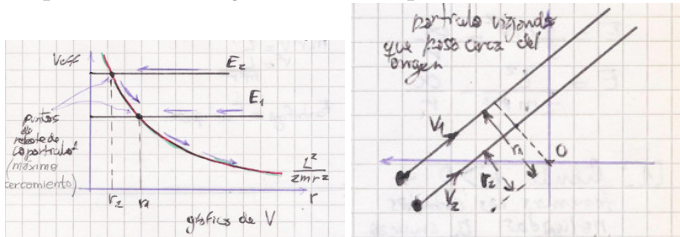 Veff
E₂
E₁
puntos
de
rebote de
la partícula
(máximo
cercamiento)
L²
2mr²
r₂
r₁
r
gráfico de V
partícula viajando
que pasa cerca del
origen
V₁
r₁
O
V₂
r₂